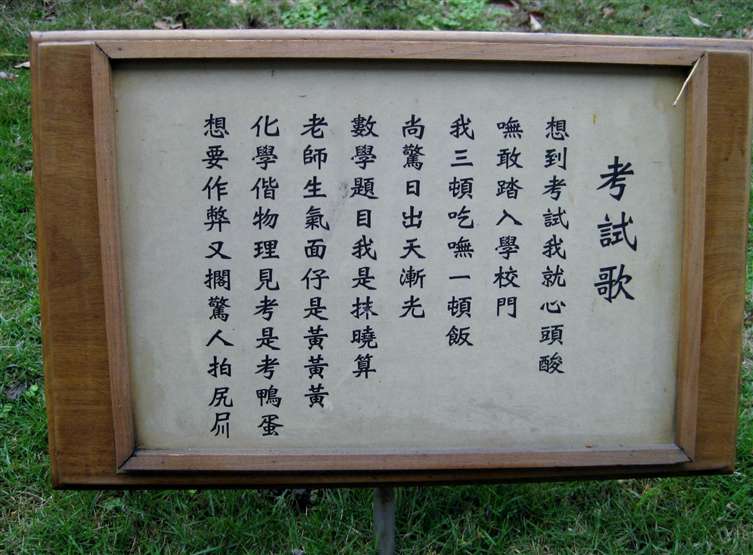 考試歌
想到考試我就心頭酸
嘸敢踏入學校門
我三頓吃嘸一頓飯
尚驚日出天漸光
數學題目我是抹曉算
老師生氣面仔是黃黃黃
化學偕物理見考是考鴨蛋
想要作弊又擱驚人拍尻川